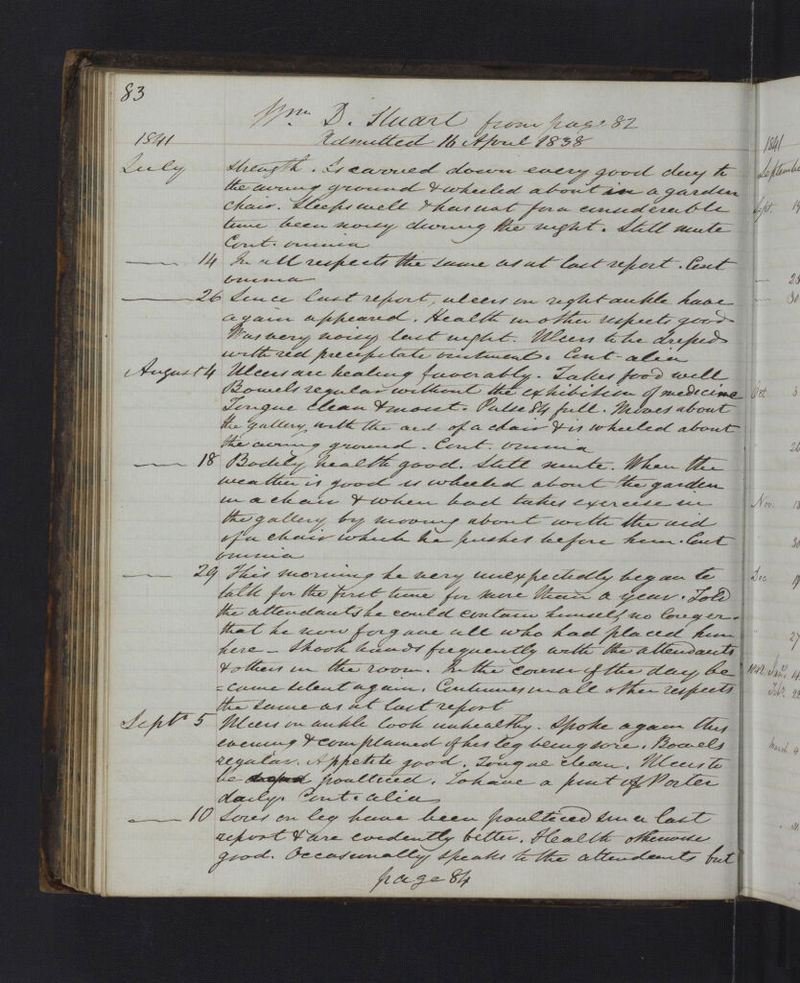 83
Wm D. Stuart from page 82
1841 Admitted 16 April 1838
July strength. Is carried down every good day to
the airing ground & wheeled about in a garden
chair. Sleeps well & has not for a considerable
time been noisy during the night. Still mute
Cont. omnia
—— 14 In all respects the same as at last report. Cont
omnia
—— 26 Since last report, ulcers on right ankle have
again appeared. Health in other respects good
Was very noisy last night. Ulcers to be dressed
with red precipitate ointment. Cont. alia
August 4 Ulcers are healing favorably. Takes food well
Bowels regular without the exhibition of medicine
Tongue clean & moist. Pulse 84 full. Moves about
the gallery with the aid of a chair & is wheeled about
the airing ground. Cont. omnia
—— 18 Bodily health good. Still mute. When the
weather is good is wheeled about the garden
in a chair & when bad takes exercise in
the gallery by moving about with the aid
of a chair which he pushes before him. Cont
omnia
—— 29 This morning he very unexpectedly began to
talk for the first time for more than a year. Told
the attendants he could contain himself no longer –
that he now forgave all who had placed him
here – Shook hands frequently with the attendants
& others in the room. In the course of the day be
=came silent again. Continues in all other respects
the same as at last report
Septr 5 Ulcers on ankle look unhealthy. Spoke again this
evening & complained of his leg being sore. Bowels
regular. Appetite good. Tongue clean. Ulcers to
be poulticed. To have a pint of Porter
daily. Cont. alia
—— 10 Sores on leg have been poulticed since last
report & are evidently better. Health otherwise
good. Occasionally speaks to the attendants but
page 84
1841
Septembe
Sept. 
28
30
Oct 3
26
Nov.
30
Dec
27
1842 Jan.
Feb. 22
March 4